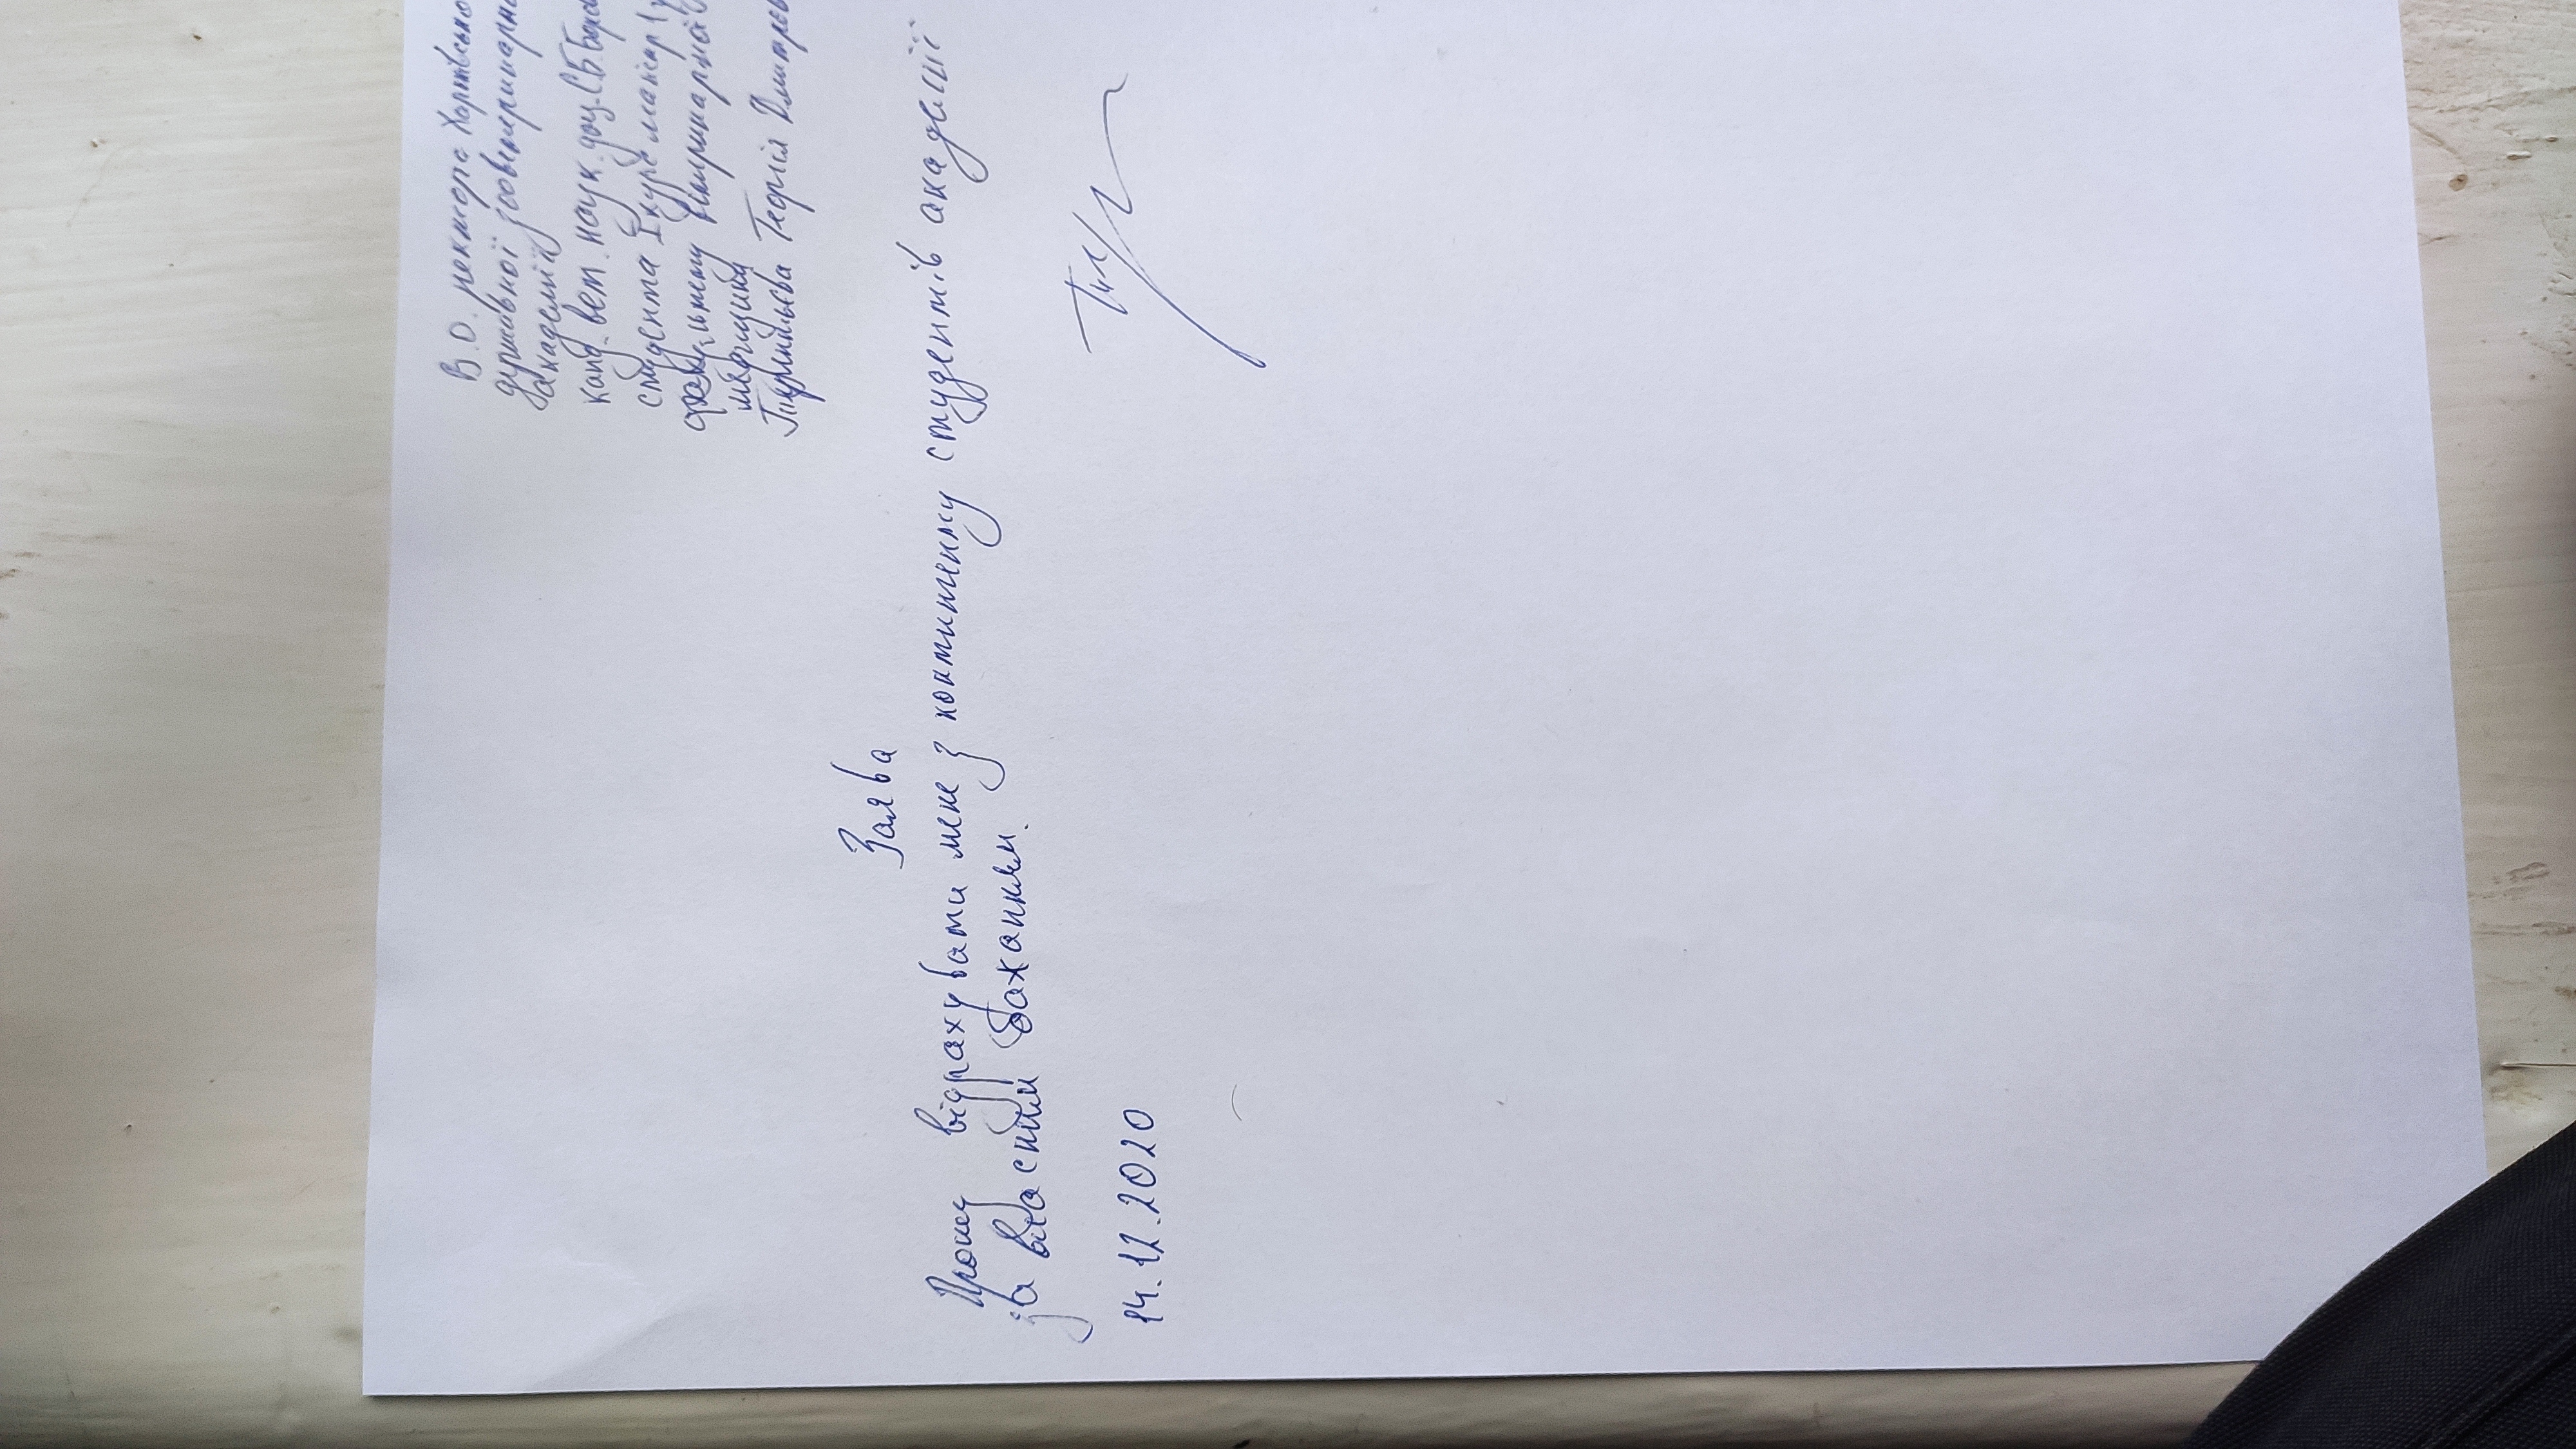 В.О. ректора Харківсько
державної зооветеринарн
академії
канд. вет. наук. доц. С.Б. Боров
студента I курс магістр
ветеринарної
медицина
Георгія Дмитрев
Заява
Прошу відрахувати мене з контингенту студентів академії
за власним бажанням.
14.12.2020